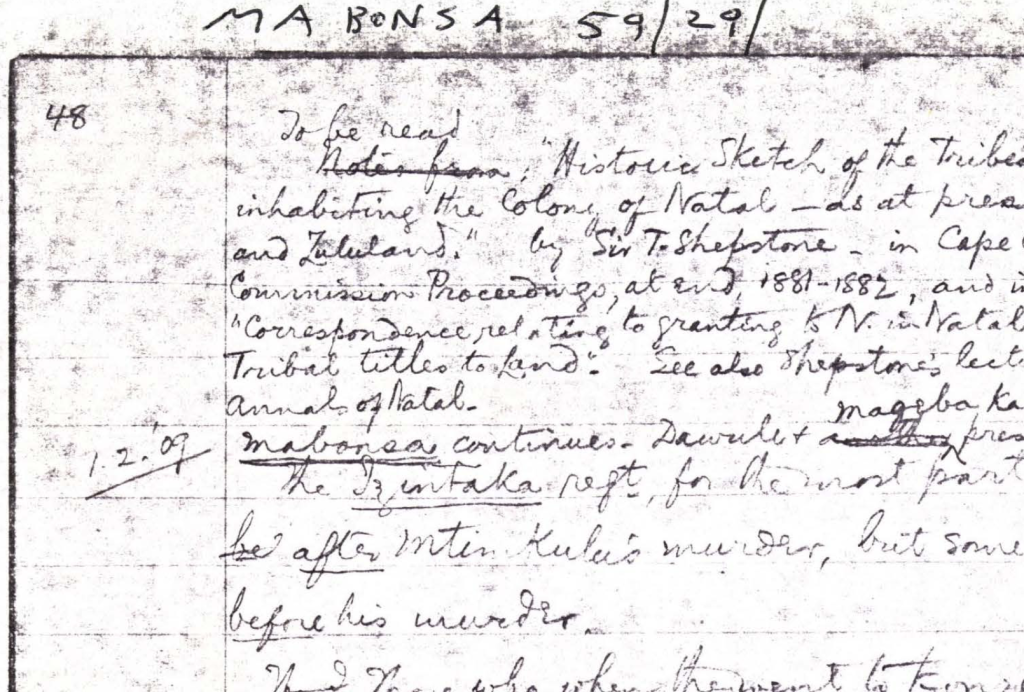 MABONSA 59/29/
48
To be read
Notes from "Historic Sketch of the Tribes
inhabiting the Colony of Natal - as at pres
and Zululand." by Sir T. Shepstone - in Cape
Commission Proceedings, at end, 1881-1882, and in
"Correspondence relating to granting to N. in Natal
Tribal titles to Land". See also Shepstone's lect
Annals of Natal.
mageba ka
1.2.'09 Mabonsa continues. Dawule & pres
the Izintaka regt, for the most part
be after Mtimkulu's murder, but some
before his murder.
who when the went to